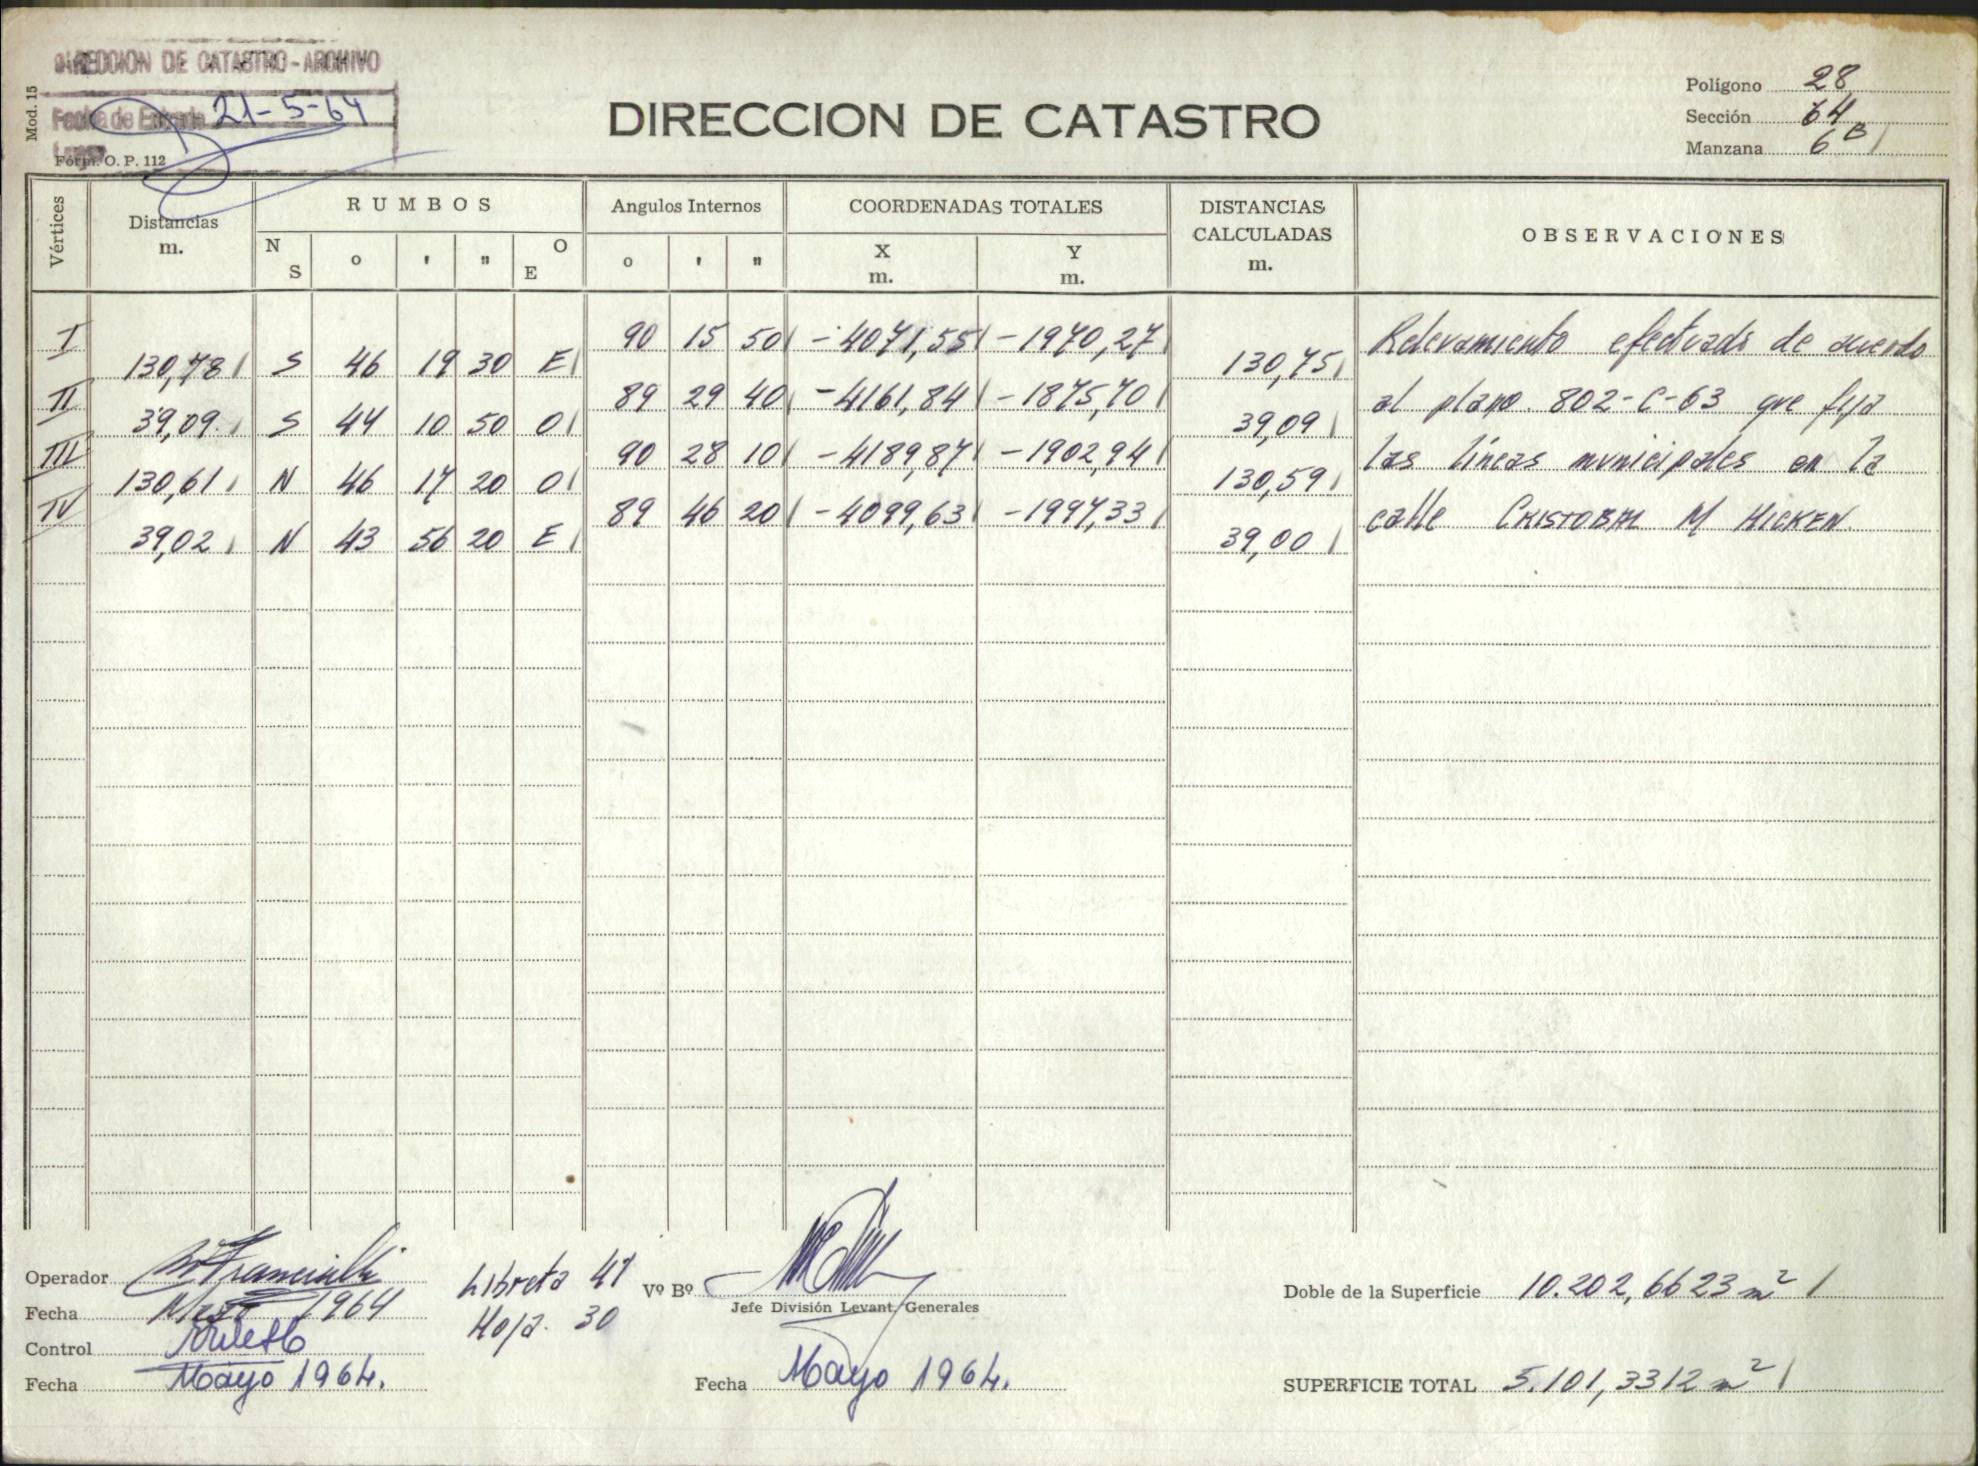 DIRECCION DE CATASTRO - ARCHIVO
Fecha de Entrada 21-5-64
Mod. 15
Fórm. O. P. 112
DIRECCION DE CATASTRO
Polígono 28
Sección 64
Manzana 6B
Vértices
Distancias
m.
RUMBOS
N S ° ' " O E
Angulos Internos
° ' "
COORDENADAS TOTALES
X
m.
Y
m.
DISTANCIAS
CALCULADAS
m.
OBSERVACIONES
I 90 15 50 -4071,55 -1970,27 Relevamiento efectuado de acuerdo
130,78 S 46 19 30 E 130,75
II 89 29 40 -4161,84 -1875,70 al plano 802-C-63 que fija
39,09 S 44 10 50 O 39,09
III 90 28 10 -4189,87 -1902,94 las líneas municipales en la
130,61 N 46 17 20 O 130,59
IV 89 46 20 -4099,63 -1997,33 calle CRISTOBAL M HICKEN.
39,02 N 43 56 20 E 39,00
Operador
Fecha Mayo 1964
Control
Fecha Mayo 1964.
Libreta 47
Hoja. 30
Vº Bº
Jefe División Levant. Generales
Fecha Mayo 1964.
Doble de la Superficie 10.202,6623 m²
SUPERFICIE TOTAL 5.101,3312 m²